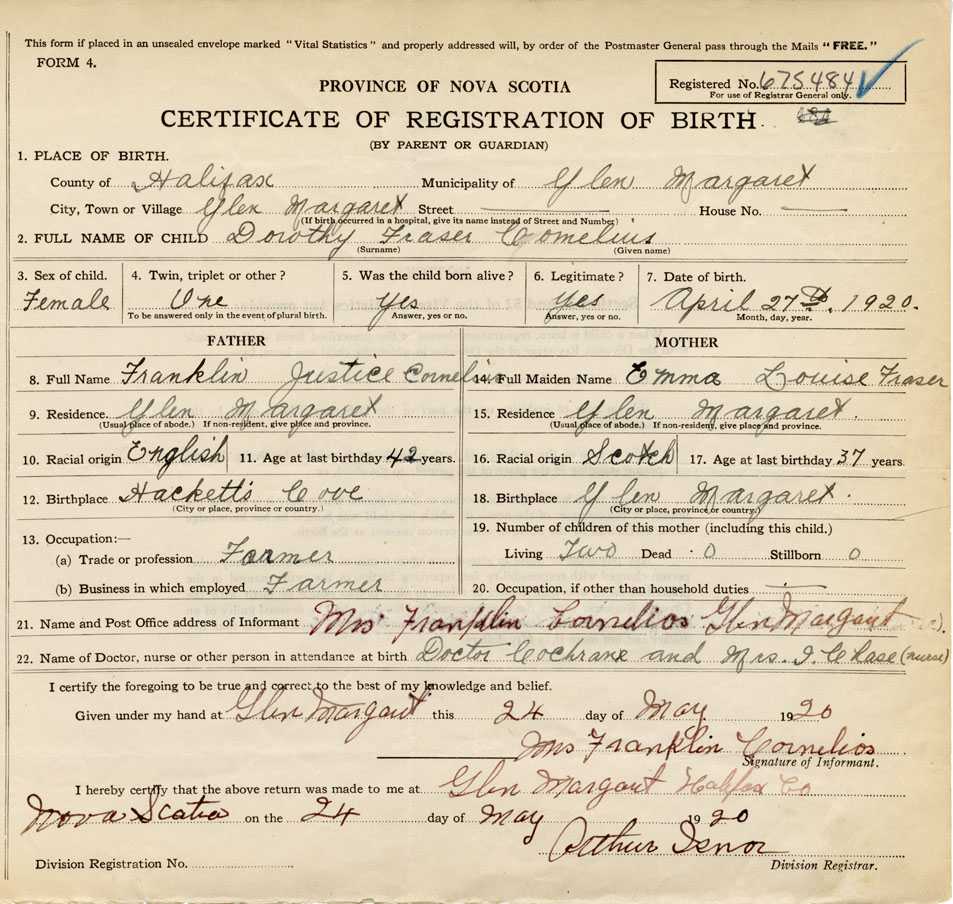 This form if placed in an unsealed envelope marked "Vital Statistics" and properly addressed will, by order of the Postmaster General pass through the Mails "FREE."
FORM 4.
PROVINCE OF NOVA SCOTIA
Registered No. 675484
For use of Registrar General only.
CERTIFICATE OF REGISTRATION OF BIRTH
(BY PARENT OR GUARDIAN)
1. PLACE OF BIRTH.
County of Halifax Municipality of Glen Margaret
City, Town or Village Glen Margaret Street House No.
(If birth occurred in a hospital, give its name instead of Street and Number)
2. FULL NAME OF CHILD Dorothy Fraser Cornelius
(Surname) (Given name)
3. Sex of child. 4. Twin, triplet or other? 5. Was the child born alive? 6. Legitimate? 7. Date of birth.
Female One Yes Yes April 27th, 1920.
To be answered only in the event of plural birth. Answer, yes or no. Answer, yes or no. Month, day, year.
FATHER MOTHER
8. Full Name Franklin Justice Cornelius 14. Full Maiden Name Emma Louise Fraser
9. Residence. Glen Margaret 15. Residence Glen Margaret.
(Usual place of abode.) If non-resident, give place and province. (Usual place of abode.) If non-resident, give place and province.
10. Racial origin English 11. Age at last birthday 42 years. 16. Racial origin Scotch 17. Age at last birthday 37 years
12. Birthplace Hackett's Cove 18. Birthplace Glen Margaret.
(City or place, province or country.) (City or place, province or country.)
19. Number of children of this mother (including this child.)
13. Occupation:—
(a) Trade or profession Farmer Living Two Dead 0 Stillborn 0
(b) Business in which employed Farmer 20. Occupation, if other than household duties
21. Name and Post Office address of Informant Mrs Franklin Cornelios Glen Margaut
22. Name of Doctor, nurse or other person in attendance at birth Doctor Cochrane and Mrs. I. Chase (nurse)
I certify the foregoing to be true and correct to the best of my knowledge and belief.
Given under my hand at Glen Margaut this 24 day of May 1920
Mrs Franklin Cornelios
Signature of Informant.
I hereby certify that the above return was made to me at Glen Margaut Halifax Co
Nova Scotia on the 24 day of May 1920
Arthur Isnor
Division Registration No. Division Registrar.